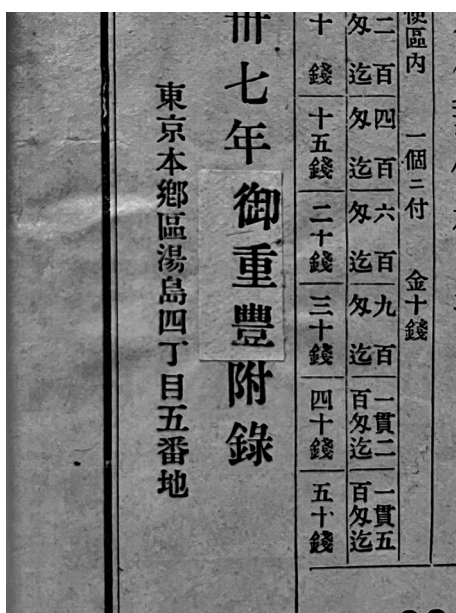 便區内 一個ニ付 金十錢
二百匁迄
四百匁迄
六百匁迄
九百匁迄
一貫二百匁迄
一貫五百匁迄
十錢
十五錢
二十錢
三十錢
四十錢
五十錢
卅七年御重豐附錄
東京本鄕區湯島四丁目五番地